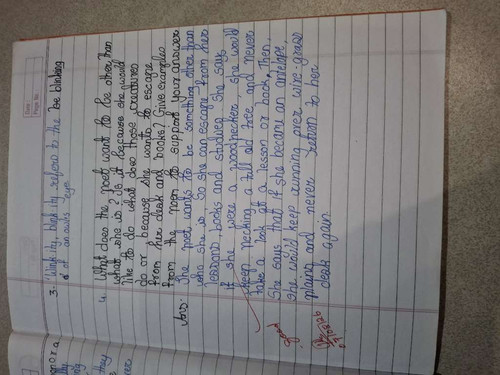 Date
Page No.
3. "blink ity, blink ity refers to the be blinking
of an owls eye
4. What does the poet want to be other than
what she is? Is it because she would
like to do what does those creatures
do or because she wants to escape
from her desk and books? Give examples
from the poem to support your answer
Ans: The poet wants to be something other than
who she is so she can escape from her
lessons, books and studies. She says
if she were a woodpecker, she would
keep pecking a tall old tree and never
take a look at a lesson or book. Then,
She says that if she became an antelope,
she would keep running over wire-grass
plains and never return to her
desk again.
good
they